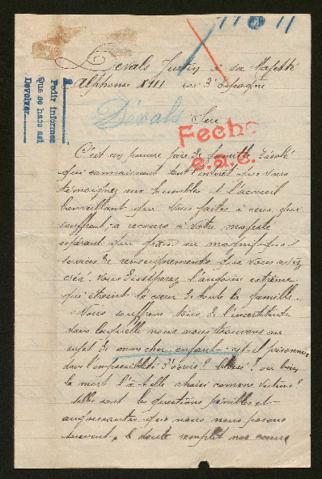 Devals Justin à sa Majesté
Alphonse XIII roi d'Espagne
Pedir informes
Que se haga así
Devolver
Dévals
Sire
Fecha
C'est un pauvre père de famille désolé
qui connaissant tout l'intérêt que vous
témoignez aux humbles et l'accueil
bienveillant que vous faites à ceux qui
souffrent, a recours à votre majesté
espérant que grâce au magnifique
service de renseignements que vous avez
créé, vous dissiperez l'angoisse extrême
qui étreint le cœur de toute la famille.
Nous souffrons tous de l'incertitude
dans laquelle nous nous trouvons au
sujet de mon cher enfant. Est-il prisonnier
dans l'impossibilité d'écrire? blessé? ou bien
la mort l'a-t-elle choisi comme victime?
telles sont les questions pénibles et
angoissantes que nous nous posons
souvent, le doute remplit nos cœurs